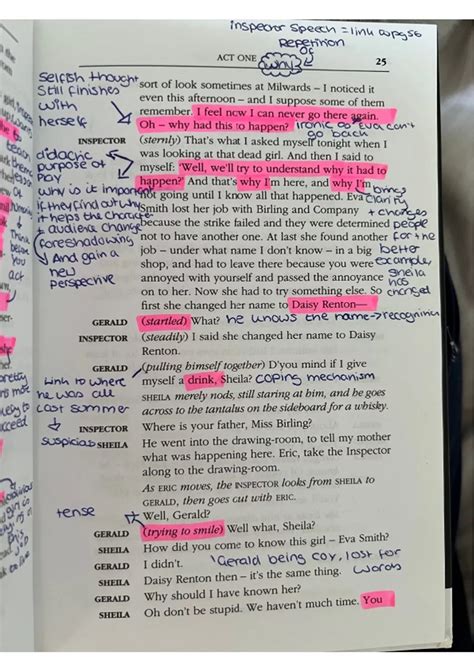 inspector speech = link to pg56
repetition
of
"why"?
ACT ONE
25
selfish thought
still finishes
with
herself
sort of look sometimes at Milwards – I noticed it
even this afternoon – and I suppose some of them
remember. I feel now I can never go there again.
Oh – why had this to happen?
ironic as Eva can't
go back
INSPECTOR
(sternly) That's what I asked myself tonight when I
was looking at that dead girl. And then I said to
myself: 'Well, we'll try to understand why it had to
happen?' And that's why I'm here, and why I'm
not going until I know all that happened. Eva
Smith lost her job with Birling and Company
because the strike failed and they were determined
not to have another one. At last she found another
job – under what name I don't know – in a big
shop, and had to leave there because you were
annoyed with yourself and passed the annoyance
on to her. Now she had to try something else. So
first she changed her name to Daisy Renton—
didactic
purpose of
play
why is it important
if they find out why
it helps the character
+ audience change
foreshadowing
And gain a
new
perspective
brings
clarity
+ changes
people
for the
better
example,
sheila
has
changed
GERALD
(startled) What?
he knows the name → recognition
INSPECTOR
(steadily) I said she changed her name to Daisy
Renton.
GERALD
(pulling himself together) D'you mind if I give
myself a drink, Sheila?
coping mechanism
SHEILA merely nods, still staring at him, and he goes
across to the tantalus on the sideboard for a whisky.
link to where
he was all
last summer
suspicious
INSPECTOR
Where is your father, Miss Birling?
SHEILA
He went into the drawing-room, to tell my mother
what was happening here. Eric, take the Inspector
along to the drawing-room.
As ERIC moves, the INSPECTOR looks from SHEILA to
GERALD, then goes out with ERIC.
tense
Well, Gerald?
GERALD
(trying to smile) Well what, Sheila?
SHEILA
How did you come to know this girl – Eva Smith?
GERALD
I didn't.
Gerald being coy, lost for
words
SHEILA
Daisy Renton then – it's the same thing.
GERALD
Why should I have known her?
SHEILA
Oh don't be stupid. We haven't much time. You